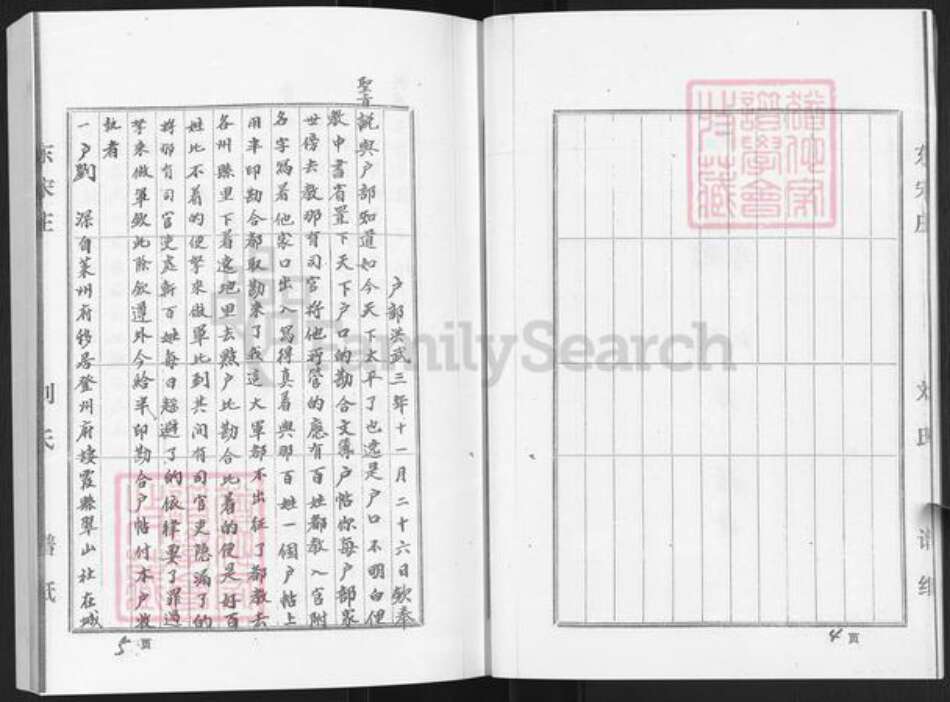 户部洪武三年十一月二十六日钦奉
聖旨説與户部知道如今天下太平了也迯是户口不明白便
教中書省置下天下户口的勘合文簿户帖你每户部家
世傍去教那有司官将他所管的應有百姓都教入官附
名字寫着他家口出入寫得真着與那百姓一個户帖上
用半印勘合都取勘来了我这大軍都不出征了都教去
各州縣里下着遶地里去點户比勘合比着的便是好百
姓比不着的便拏来做軍比到其间有司官吏隐漏了的
将那有司官吏处斬百姓每自躲避了的依律要了罪過
拏来做軍欽此除欽遵外今給半印勘合户帖付本户收
执者
一户劉 深自莱州府移居登州府棲霞縣翠山社在城
5 页
4 页
东宋庄
刘氏
谱纸
FamilySearch